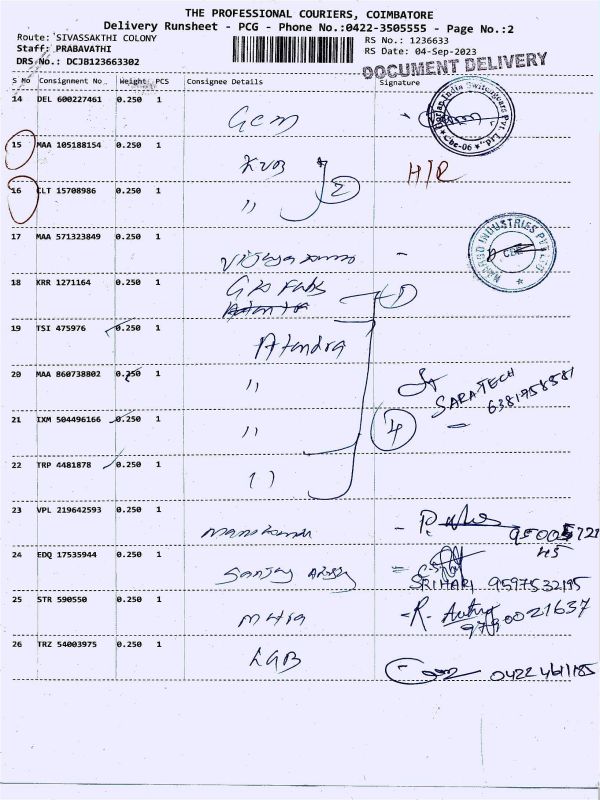 THE PROFESSIONAL COURIERS, COIMBATORE
Delivery Runsheet - PCG - Phone No.:0422-3505555 - Page No.:2
Route: SIVASSAKTHI COLONY
RS No.: 1236633
Staff: PRABAVATHI
RS Date: 04-Sep-2023
DRS No.: DCJB123663302
DOCUMENT DELIVERY
S No Consignment No Weight PCS Consignee Details Signature
14 DEL 600227461 0.250 1
GCM
15 MAA 105188154 0.250 1
KVB H/R
16 CLT 15708986 0.250 1
11 2
17 MAA 571323849 0.250 1
18 KRR 1271164 0.250 1
1
19 TSI 475976 0.250 1
Atandra
20 MAA 860738802 0.250 1
11 SARATECH
6381958581
21 IXM 504496166 0.250 1
11 4
22 TRP 4481878 0.250 1
11
23 VPL 219642593 0.250 1
24 EDQ 17535944 0.250 1
Sanjay
SRIHARI 9597532195
25 STR 590550 0.250 1
9790021637
26 TRZ 54003975 0.250 1
LGB
0422 4611185